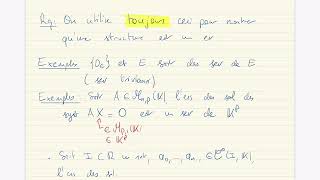 Rq : On utilise toujours ceci pour montrer
qu'une structure est un ev
Exemples {0_E} et E sont des sev de E
( sev triviaux )
Exemple : Soit A ∈ M_{n,p}(K) l'ens des sol du
syst AX = 0 est un sev de K^p
∈ M_{n,p}(K)
∈ K^p
• Soit I ⊂ R un int, a_0, ..., a_n ∈ C^0(I, K)
l'ens des sol.